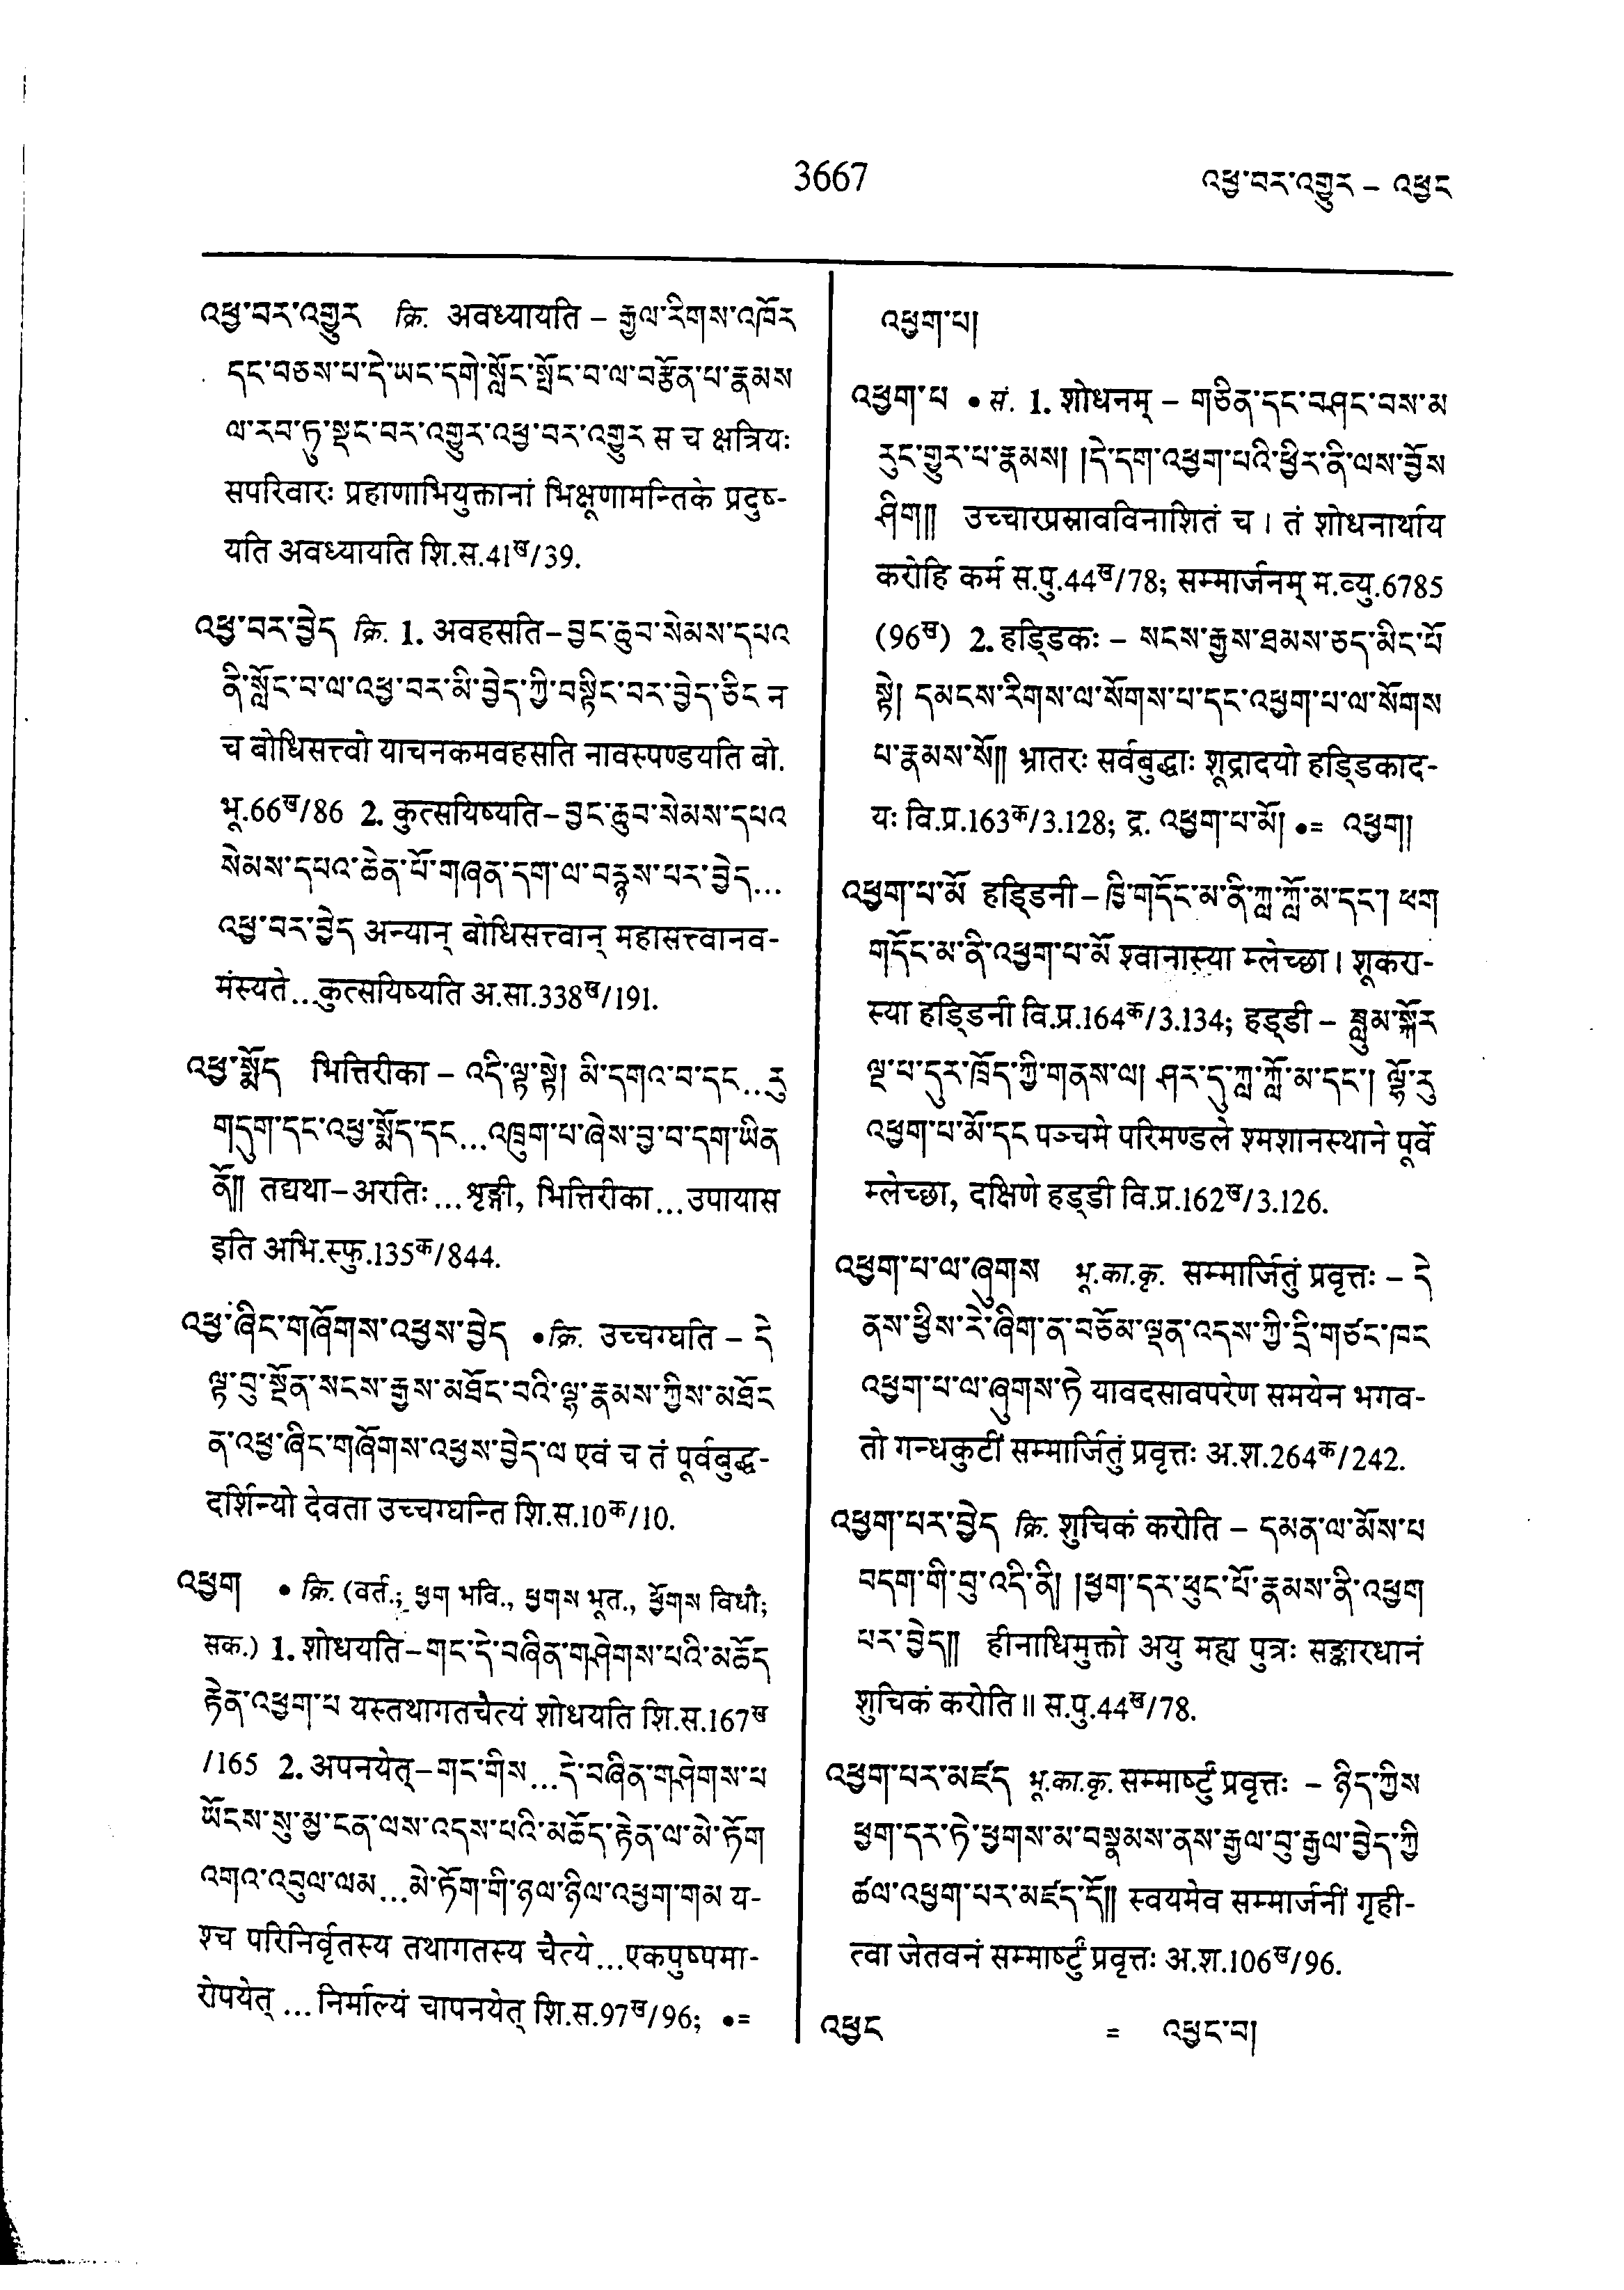 3667
འཕྱ་བར་འགྱུར – འཕྱང
འཕྱ་བར་འགྱུར क्रि. अवध्यायति – རྒྱལ་རིགས་འཁོར
དང་བཅས་པ་དེ་ཡང་དགེ་སློང་སྤོང་བ་ལ་བརྩོན་པ་རྣམས
ལ་རབ་ཏུ་སྡང་བར་འགྱུར་འཕྱ་བར་འགྱུར स च क्षत्रियः
सपरिवारः प्रहाणाभियुक्तानां भिक्षूणामन्तिके प्रदुष-
यति अवध्यायति शि.स.41ख/39.
འཕྱ་བར་བྱེད क्रि. 1. अवहसति – བྱང་ཆུབ་སེམས་དཔའ
ནི་སློང་བ་ལ་འཕྱ་བར་མི་བྱེད་ཀྱི་བསྟིང་བར་བྱེད་ཅིང न
च बोधिसत्त्वो याचनकमवहसति नावस्पण्डयति बो.
भू.66ख/86 2. कुत्सयिष्यति – བྱང་ཆུབ་སེམས་དཔའ
སེམས་དཔའ་ཆེན་པོ་གཞན་དག་ལ་བརྙས་པར་བྱེད...
འཕྱ་བར་བྱེད अन्यान् बोधिसत्त्वान् महासत्त्वानव-
मंस्यते...कुत्सयिष्यति अ.सा.338ख/191.
འཕྱ་སྨོད भित्तिरीका – འདི་ལྟ་སྟེ། མི་དགའ་བ་དང...རྭ
གདུག་དང་འཕྱ་སྨོད་དང...འཁྲུག་པ་ཞེས་བྱ་བ་དག་ཡིན
ནོ།། तद्यथा – अरतिः...शृङ्गी, भित्तिरीका...उपायास
इति अभि.स्फु.135क/844.
འཕྱ་ཞིང་གཞོགས་འཕྱས་བྱེད • क्रि. उच्चग्घति – དེ
ལྟ་བུ་སྔོན་སངས་རྒྱས་མཐོང་བའི་ལྷ་རྣམས་ཀྱིས་མཐོང
ན་འཕྱ་ཞིང་གཞོགས་འཕྱས་བྱེད་ལ एवं च तं पूर्वबुद्ध-
दर्शिन्यो देवता उच्चग्घन्ति शि.स.10क/10.
འཕྱག • क्रि. (वर्त.; ཕྱག भवि., ཕྱགས भूत., ཕྱོགས विधौ;
सक.) 1. शोधयति – གང་དེ་བཞིན་གཤེགས་པའི་མཆོད
རྟེན་འཕྱག་པ यस्तथागतचैत्यं शोधयति शि.स.167ख
/165 2. अपनयेत् – གང་གིས...དེ་བཞིན་གཤེགས་པ
ཡོངས་སུ་མྱ་ངན་ལས་འདས་པའི་མཆོད་རྟེན་ལ་མེ་ཏོག
འགའ་འབུལ་ལམ...མེ་ཏོག་གི་ཉལ་ཉིལ་འཕྱག་གམ य-
श्च परिनिर्वृतस्य तथागतस्य चैत्ये...एकपुष्पमा-
रोपयेत् ...निर्माल्यं चापनयेत् शि.स.97ख/96; •=
འཕྱག་པ།
འཕྱག་པ • सं. 1. शोधनम् – གཅིན་དང་བཤང་བས་མ
རུང་གྱུར་པ་རྣམས། །དེ་དག་འཕྱག་པའི་ཕྱིར་ནི་ལས་བྱོས
ཤིག།། उच्चारप्रस्रावविनाशितं च। तं शोधनार्थाय
करोहि कर्म स.पु.44ख/78; सम्मार्जनम् म.व्यु.6785
(96ख) 2. हड्डिकः – སངས་རྒྱས་ཐམས་ཅད་མིང་པོ
སྟེ། དམངས་རིགས་ལ་སོགས་པ་དང་འཕྱག་པ་ལ་སོགས
པ་རྣམས་སོ།། भ्रातरः सर्वबुद्धाः शूद्रादयो हड्डिकाद-
यः वि.प्र.163क/3.128; द्र. འཕྱག་པ་མོ། •= འཕྱག།
འཕྱག་པ་མོ हड्डिनी – ཁྱི་གདོང་མ་ནི་ཀླ་ཀློ་མ་དང་། ཕག
གདོང་མ་ནི་འཕྱག་པ་མོ श्वानास्या म्लेच्छा। शूकरा-
स्या हड्डिनी वि.प्र.164क/3.134; हड्डी – ཟླུམ་སྐོར
ལྔ་པ་དུར་ཁྲོད་ཀྱི་གནས་ལ། ཤར་དུ་ཀླ་ཀློ་མ་དང་། ལྷོ་རུ
འཕྱག་པ་མོ་དང पञ्चमे परिमण्डले श्मशानस्थाने पूर्वे
म्लेच्छा, दक्षिणे हड्डी वि.प्र.162ख/3.126.
འཕྱག་པ་ལ་ཞུགས भू.का.कृ. सम्मार्जितुं प्रवृत्तः – དེ
ནས་ཕྱིས་རེ་ཞིག་ན་བཅོམ་ལྡན་འདས་ཀྱི་དྲི་གཙང་ཁང
འཕྱག་པ་ལ་ཞུགས་ཏེ यावदसावपरेण समयेन भगव-
तो गन्धकुटीं सम्मार्जितुं प्रवृत्तः अ.श.264क/242.
འཕྱག་པར་བྱེད क्रि. शुचिकं करोति – དམན་ལ་མོས་པ
བདག་གི་བུ་འདི་ནི། །ཕྱག་དར་ཕུང་པོ་རྣམས་ནི་འཕྱག
པར་བྱེད།། हीनाधिमुक्तो अयु मह्य पुत्रः सङ्कारधानं
शुचिकं करोति॥ स.पु.44ख/78.
འཕྱག་པར་མཛད भू.का.कृ. सम्मार्ष्टुं प्रवृत्तः – ཉིད་ཀྱིས
ཕྱག་དར་ཏེ་ཕྱགས་མ་བསྣམས་ནས་རྒྱལ་བུ་རྒྱལ་བྱེད་ཀྱི
ཚལ་འཕྱག་པར་མཛད་དོ།། स्वयमेव सम्मार्जनीं गृही-
त्वा जेतवनं सम्मार्ष्टुं प्रवृत्तः अ.श.106ख/96.
འཕྱང = འཕྱང་བ།